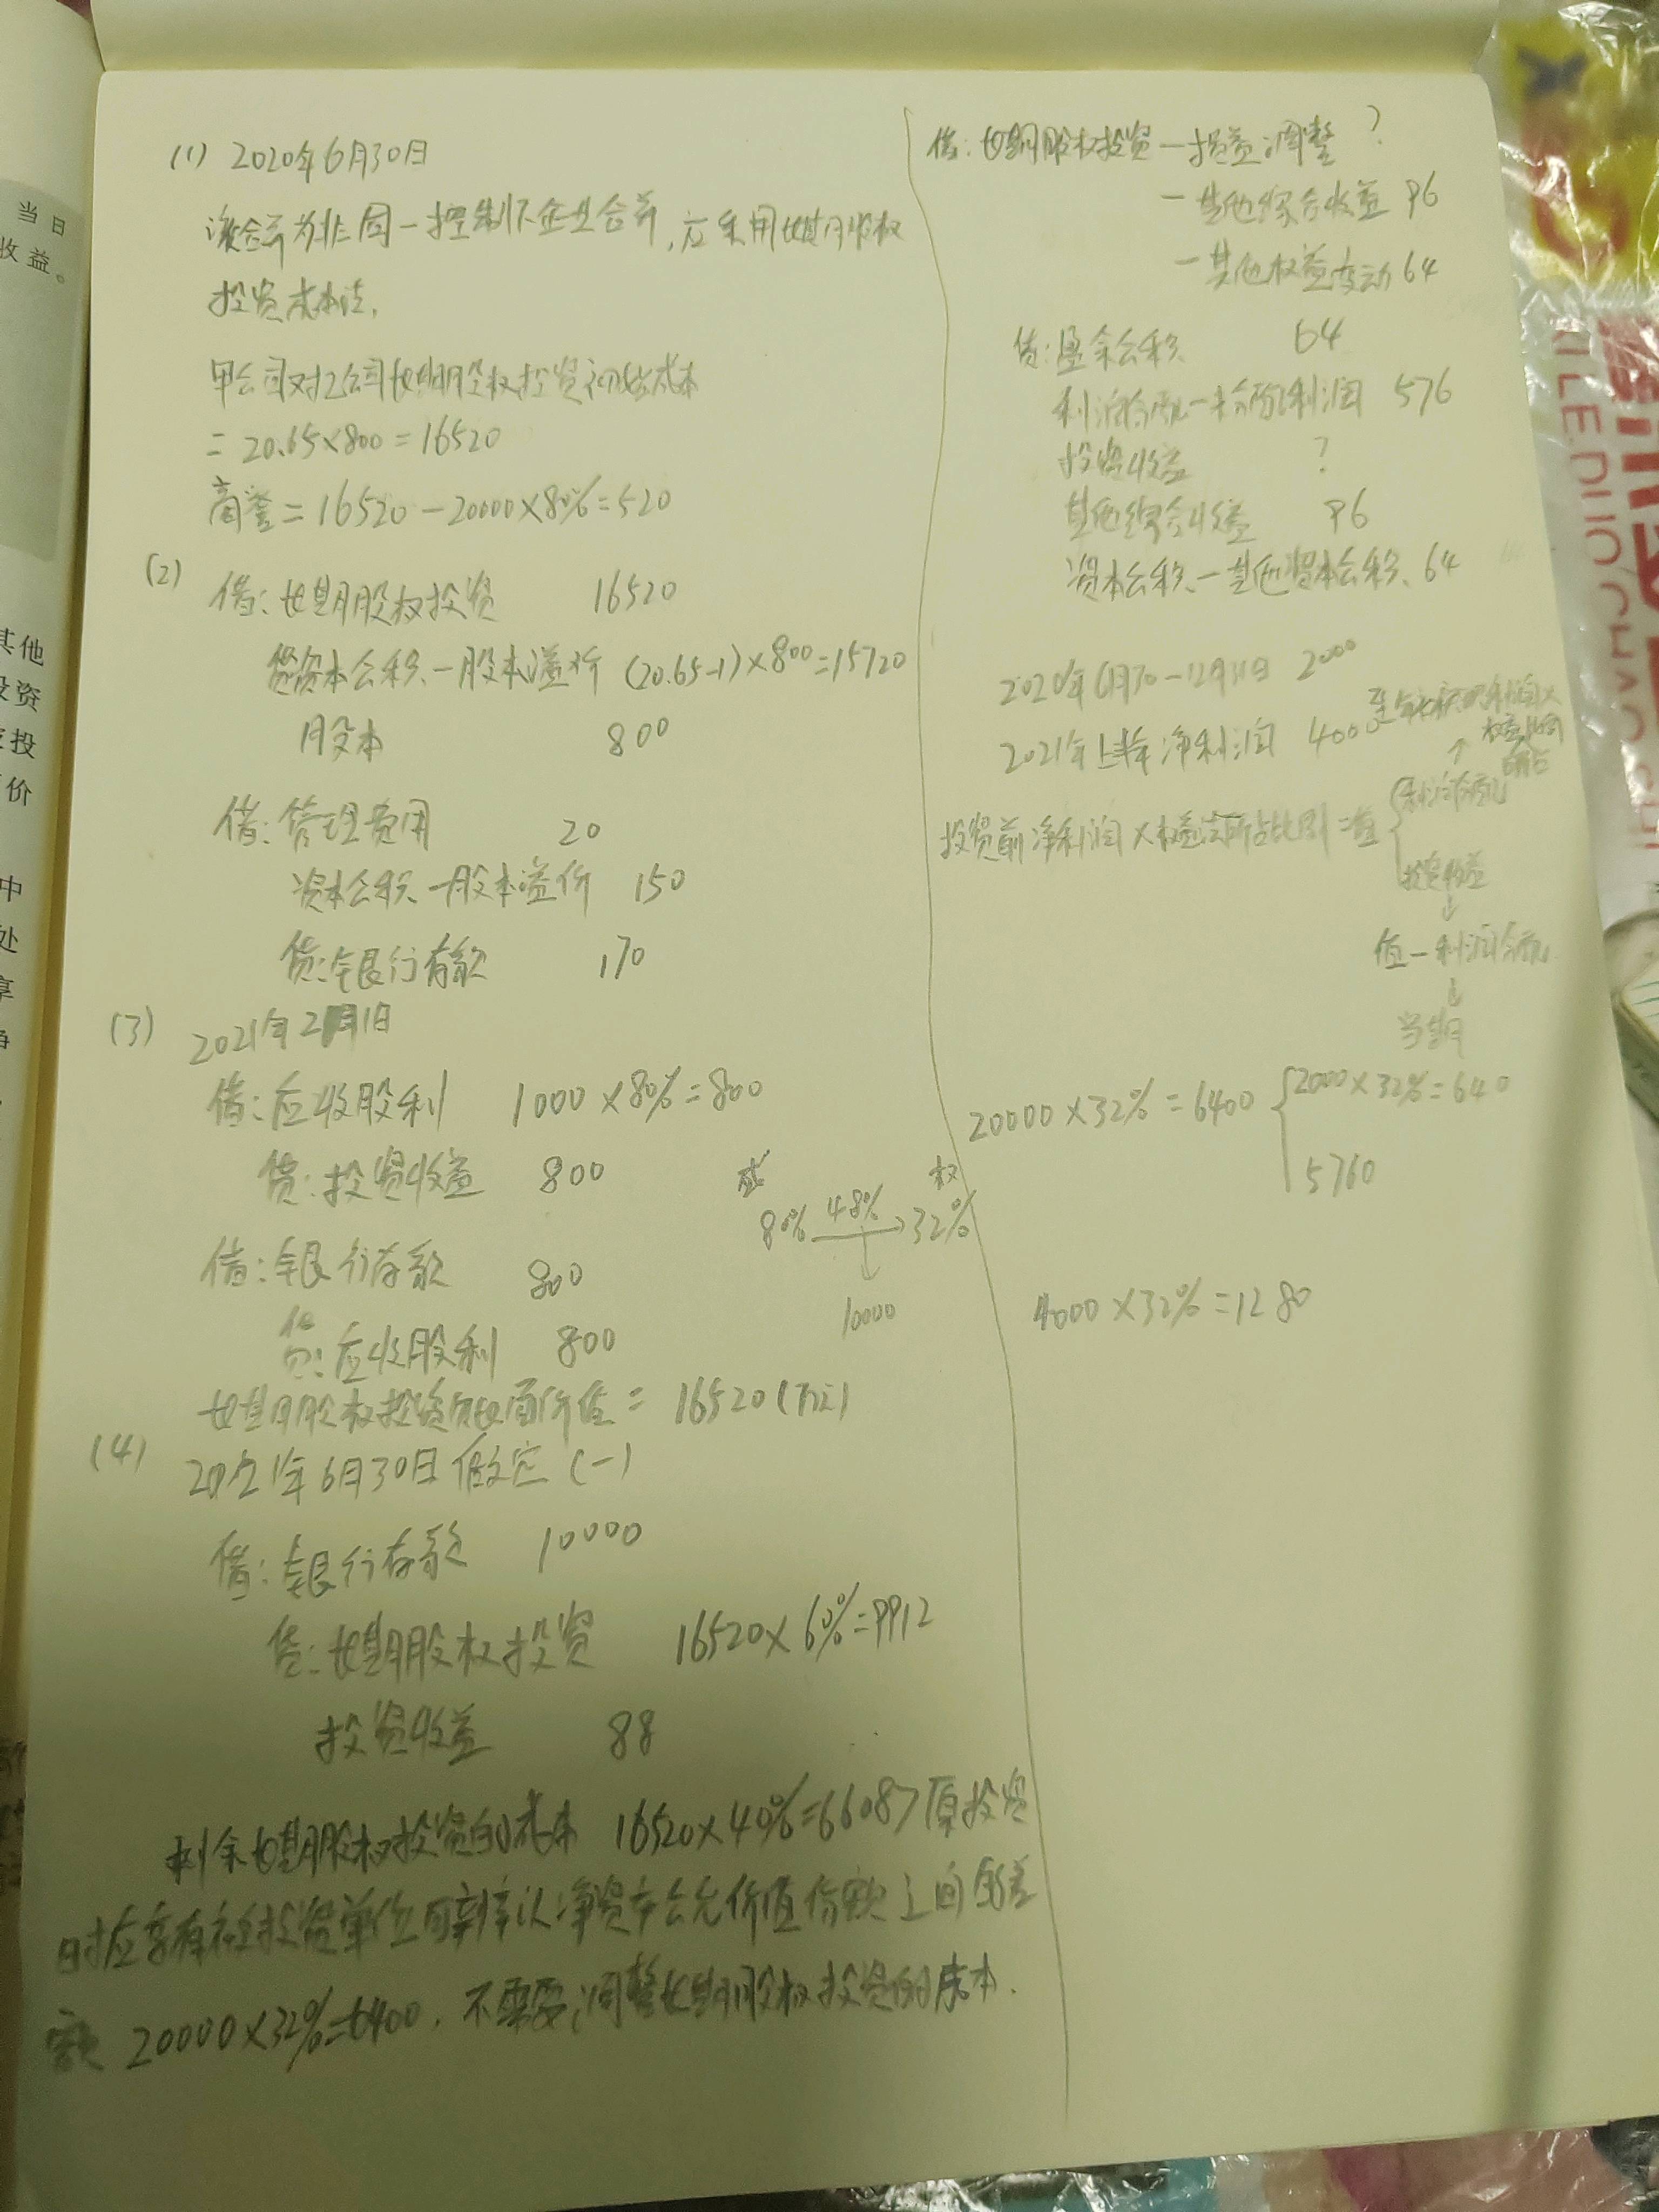 (1) 2020年6月30日
该合并为非同一控制下企业合并,应采用长期股权
投资成本法,
甲公司对乙公司长期股权投资初始成本
=20.65×800=16520
商誉=16520-20000×80%=520
(2) 借:长期股权投资 16520
贷资本公积-股本溢价 (20.65-1)×800=15720
股本 800
借:管理费用 20
资本公积-股本溢价 150
贷:银行存款 170
(3) 2021年2月1日
借:应收股利 1000×80%=800
贷:投资收益 800
借:银行存款 800
贷:应收股利 800
长期股权投资账面价值=16520(万元)
成 权
80% 48% 32%
10000
(4) 2021年6月30日 假定(一)
借:银行存款 10000
贷:长期股权投资 16520×60%=9912
投资收益 88
剩余长期股权投资的成本 16520×40%=6608>原投资
时应享有被投资单位可辨认净资产公允价值份额之间的差
额 20000×32%=6400,不需要调整长期股权投资的成本.
借:长期股权投资-损益调整 ?
-其他综合收益 96
-其他权益变动 64
贷:盈余公积 64
利润分配-未分配利润 576
投资收益 ?
其他综合收益 96
资本公积-其他资本公积 64
2020年6月30-12月31日 2000
2021年上半年净利润 4000
投资前净利润×权益法所占比例
利润分配
投资收益
值-利润分配
当期
20000×32%=6400
2000×32%=640
5760
4000×32%=1280
当日
收益。
其他
投资
投
价
中
处
享